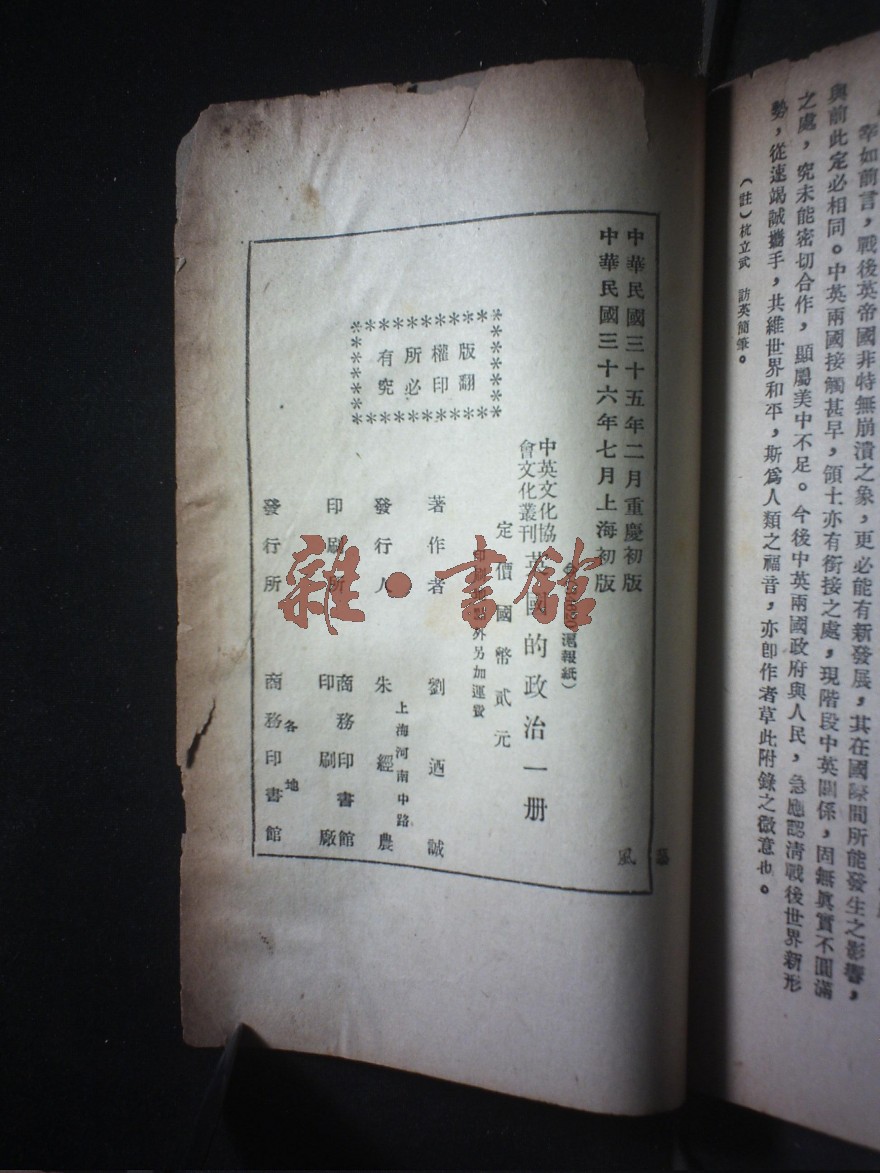 幸如前言，戰後英帝國非特無崩潰之象，更必能有新發展，其在國際間所能發生之影響，
與前此定必相同。中英兩國接觸甚早，領土亦有銜接之處，現階段中英關係，固無眞實不圓滿
之處，究未能密切合作，顯屬美中不足。今後中英兩國政府與人民，急應認清戰後世界新形
勢，從速竭誠攜手，共維世界和平，斯爲人類之福音，亦卽作者草此附錄之微意也。
（註）杭立武 訪英簡筆。
中華民國三十五年二月重慶初版
中華民國三十六年七月上海初版
滬報紙）
中英文化協
會文化叢刊
英國的政治一册
定價國幣貳元
外另加運費
版權所有
翻印必究
著作者 劉迺誠
發行人 朱經農
上海河南中路
印刷所 商務印書館
印刷廠
發行所 商務印書館
各地
風
雜·書館